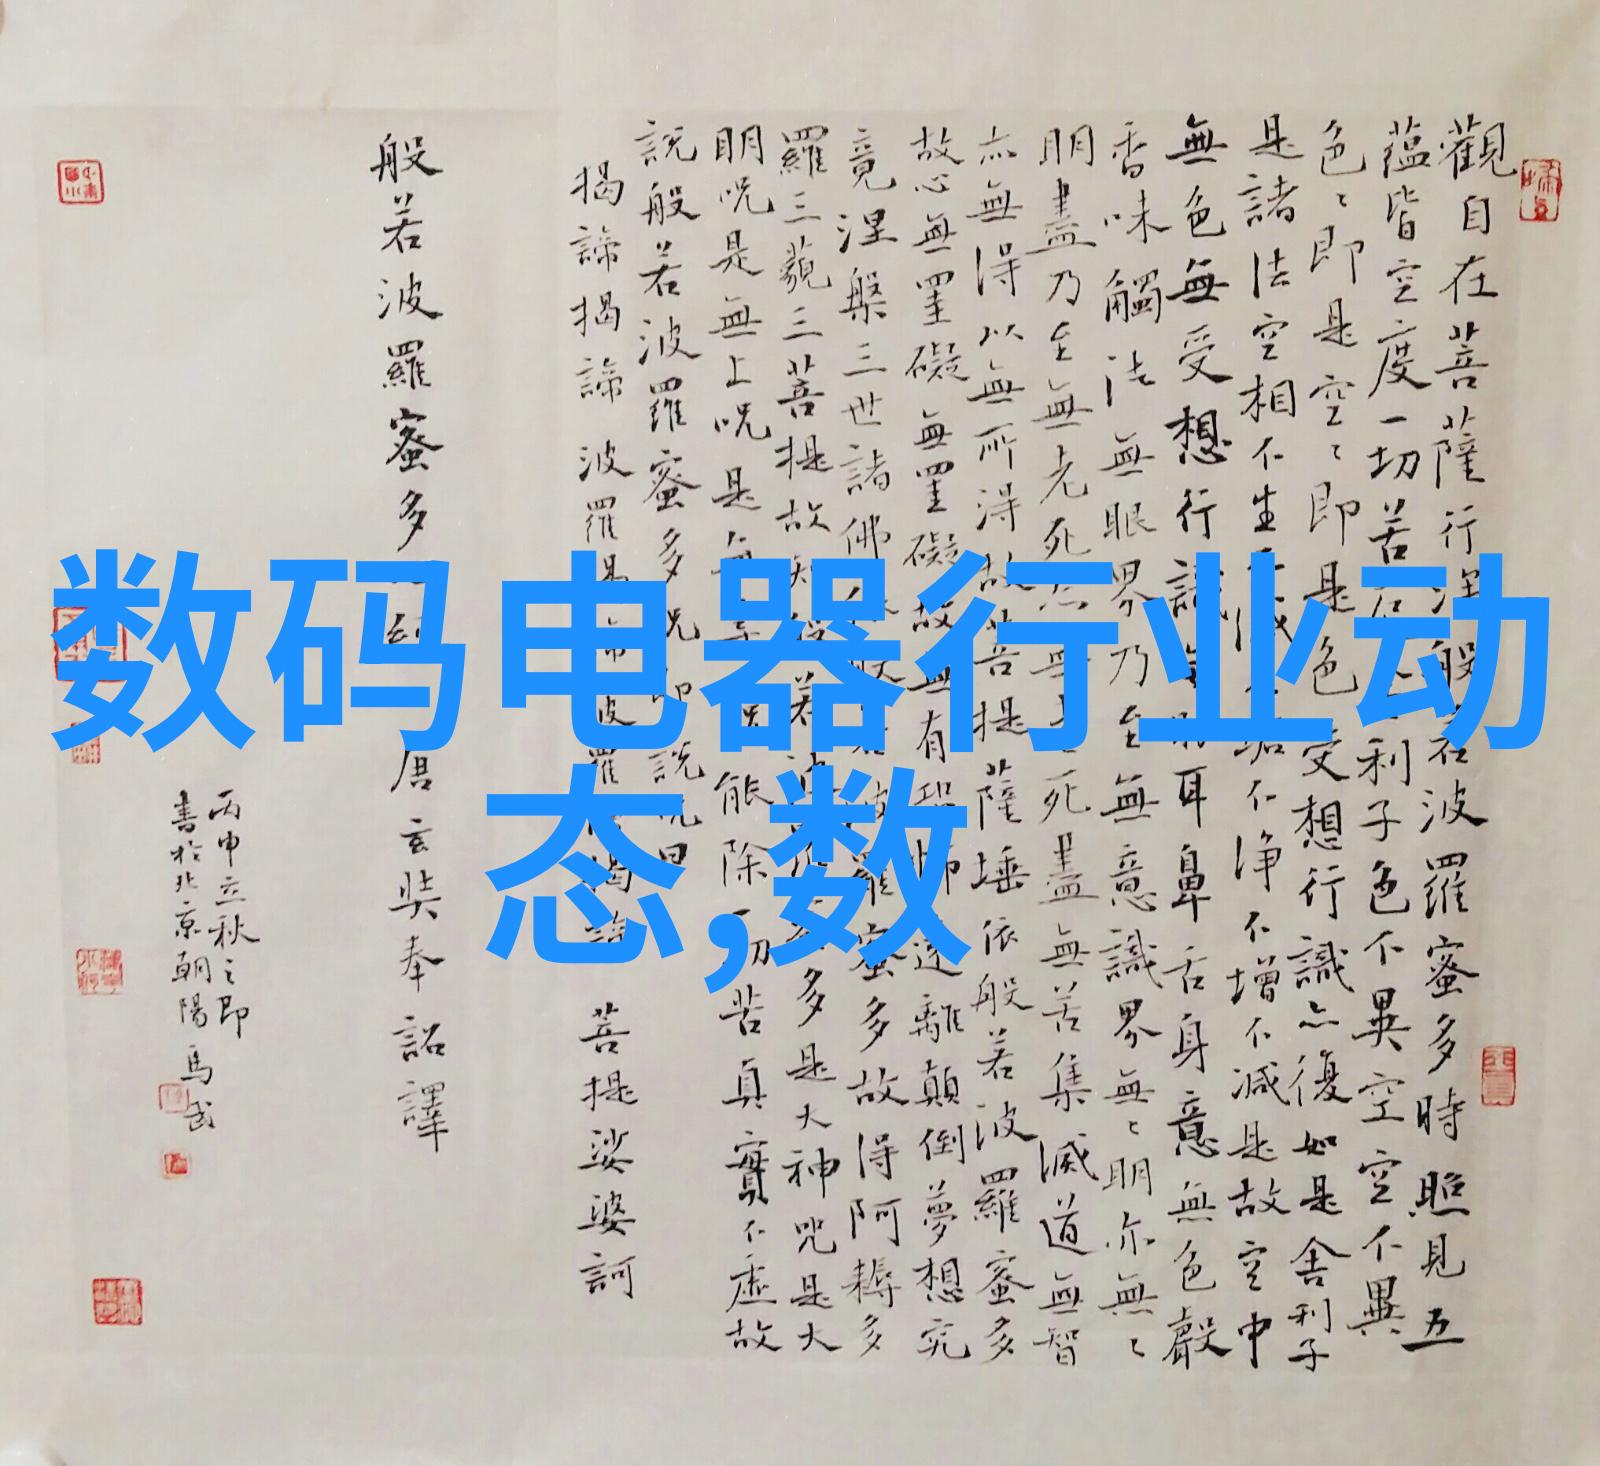 数码电器行业动
态,数
觀自在菩薩行深般若波羅蜜多時照見五
蘊皆空度一切苦厄舍利子色不異空空不異
色〻即是空〻即是色受想行識亦復如是舍利子
是諸法空相不生不滅不垢不净不增不减是故空中
無色無受想行識無眼耳鼻舌身意無色聲
香味觸法無眼界乃至無意識界無〻明亦無〻
明盡乃至無老死亦無老死盡無苦集滅道無智
亦無得以無所得故菩提薩埵依般若波羅蜜多
故心無罣礙無罣礙故無有恐怖遠離顛倒夢想究
竟涅槃三世諸佛依般若波羅蜜多故得阿耨多
羅三藐三菩提故知般若波羅蜜多是大神咒是大
明呪是無上呪是無等呪能除一切苦真實不虛故
說般若波羅蜜多呪即說呪曰
揭諦揭諦 波羅揭諦 波羅僧揭諦 菩提娑婆訶
般若波羅蜜多心經 唐玄奘奉詔譯
丙申立秋之即
書於北京朝陽 馬武